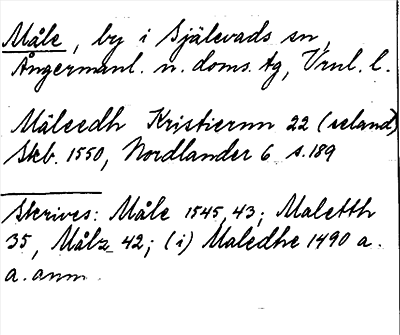 Måle, by i Själevads sn,
Ångermanl. n. doms. tg, Vrnl. l.
Måleedh Kristiernn 22 (seland)
Skb. 1550, Nordlander 6 s. 189
Skrives: Måle 1545, 43; Maletth
35, Målz 42; (i) Maledhe 1490 a.
a. anm.